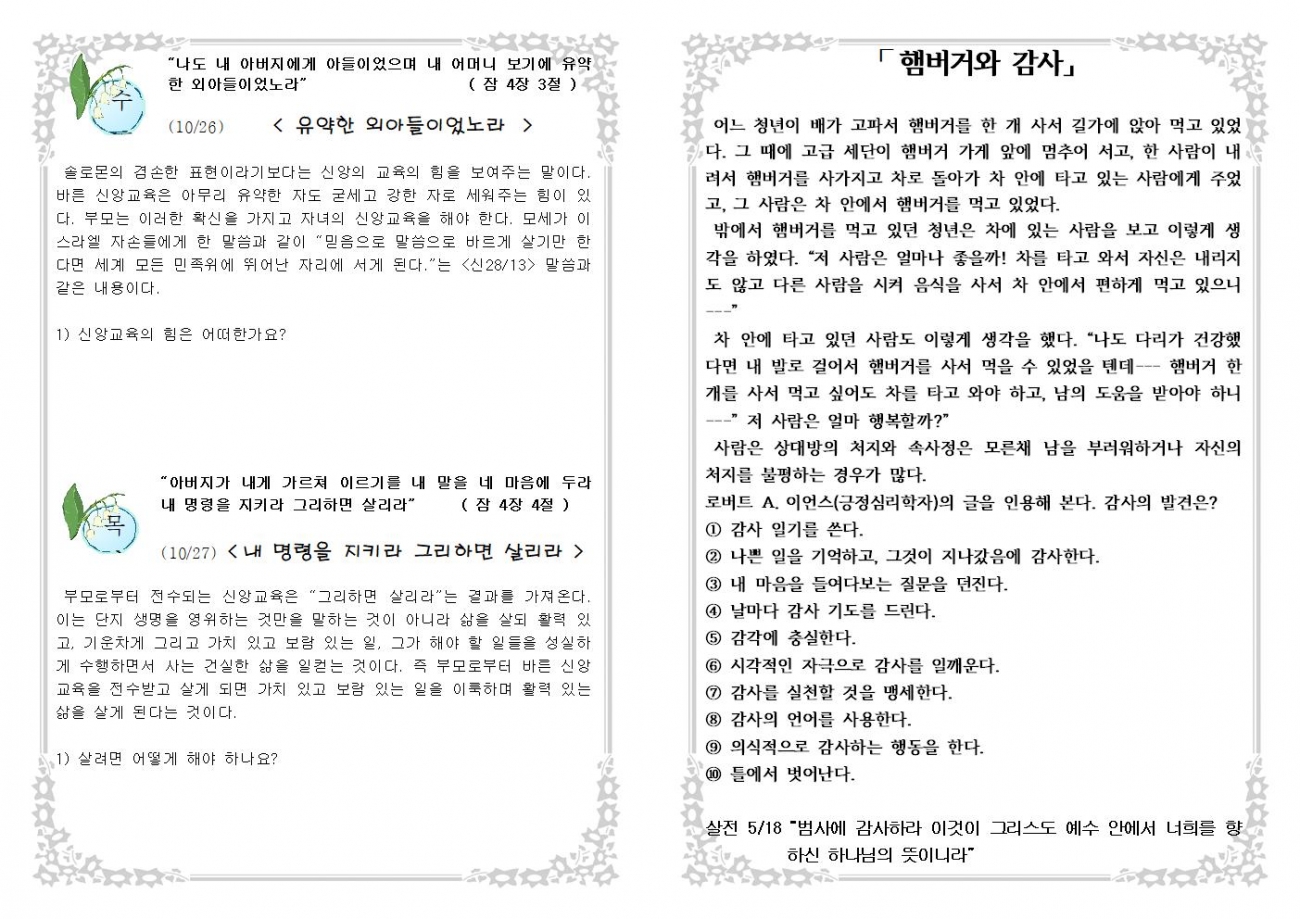 “나도 내 아버지에게 아들이었으며 내 어머니 보기에 유약
한 외아들이었노라” ( 잠 4장 3절 )
수
(10/26) < 유약한 외아들이었노라 >
솔로몬의 겸손한 표현이라기보다는 신앙의 교육의 힘을 보여주는 말이다.
바른 신앙교육은 아무리 유약한 자도 굳세고 강한 자로 세워주는 힘이 있
다. 부모는 이러한 확신을 가지고 자녀의 신앙교육을 해야 한다. 모세가 이
스라엘 자손들에게 한 말씀과 같이 “믿음으로 말씀으로 바르게 살기만 한
다면 세계 모든 민족위에 뛰어난 자리에 서게 된다.”는 <신28/13> 말씀과
같은 내용이다.
1) 신앙교육의 힘은 어떠한가요?
“아버지가 내게 가르쳐 이르기를 내 말을 네 마음에 두라
내 명령을 지키라 그리하면 살리라” ( 잠 4장 4절 )
목
(10/27) <내 명령을 지키라 그리하면 살리라 >
부모로부터 전수되는 신앙교육은 “그리하면 살리라”는 결과를 가져온다.
이는 단지 생명을 영위하는 것만을 말하는 것이 아니라 삶을 살되 활력 있
고, 기운차게 그리고 가치 있고 보람 있는 일, 그가 해야 할 일들을 성실하
게 수행하면서 사는 건실한 삶을 일컫는 것이다. 즉 부모로부터 바른 신앙
교육을 전수받고 살게 되면 가치 있고 보람 있는 일을 이룩하며 활력 있는
삶을 살게 된다는 것이다.
1) 살려면 어떻게 해야 하나요?
「햄버거와 감사」
어느 청년이 배가 고파서 햄버거를 한 개 사서 길가에 앉아 먹고 있었
다. 그 때에 고급 세단이 햄버거 가게 앞에 멈추어 서고, 한 사람이 내
려서 햄버거를 사가지고 차로 돌아가 차 안에 타고 있는 사람에게 주었
고, 그 사람은 차 안에서 햄버거를 먹고 있었다.
밖에서 햄버거를 먹고 있던 청년은 차에 있는 사람을 보고 이렇게 생
각을 하였다. “저 사람은 얼마나 좋을까! 차를 타고 와서 자신은 내리지
도 않고 다른 사람을 시켜 음식을 사서 차 안에서 편하게 먹고 있으니
---”
차 안에 타고 있던 사람도 이렇게 생각을 했다. “나도 다리가 건강했
다면 내 발로 걸어서 햄버거를 사서 먹을 수 있었을 텐데--- 햄버거 한
개를 사서 먹고 싶어도 차를 타고 와야 하고, 남의 도움을 받아야 하니
---” 저 사람은 얼마 행복할까?”
사람은 상대방의 처지와 속사정은 모른채 남을 부러워하거나 자신의
처지를 불평하는 경우가 많다.
로버트 A. 이먼스(긍정심리학자)의 글을 인용해 본다. 감사의 발견은?
① 감사 일기를 쓴다.
② 나쁜 일을 기억하고, 그것이 지나갔음에 감사한다.
③ 내 마음을 들여다보는 질문을 던진다.
④ 날마다 감사 기도를 드린다.
⑤ 감각에 충실한다.
⑥ 시각적인 자극으로 감사를 일깨운다.
⑦ 감사를 실천할 것을 맹세한다.
⑧ 감사의 언어를 사용한다.
⑨ 의식적으로 감사하는 행동을 한다.
⑩ 틀에서 벗어난다.
살전 5/18 “범사에 감사하라 이것이 그리스도 예수 안에서 너희를 향
하신 하나님의 뜻이니라”